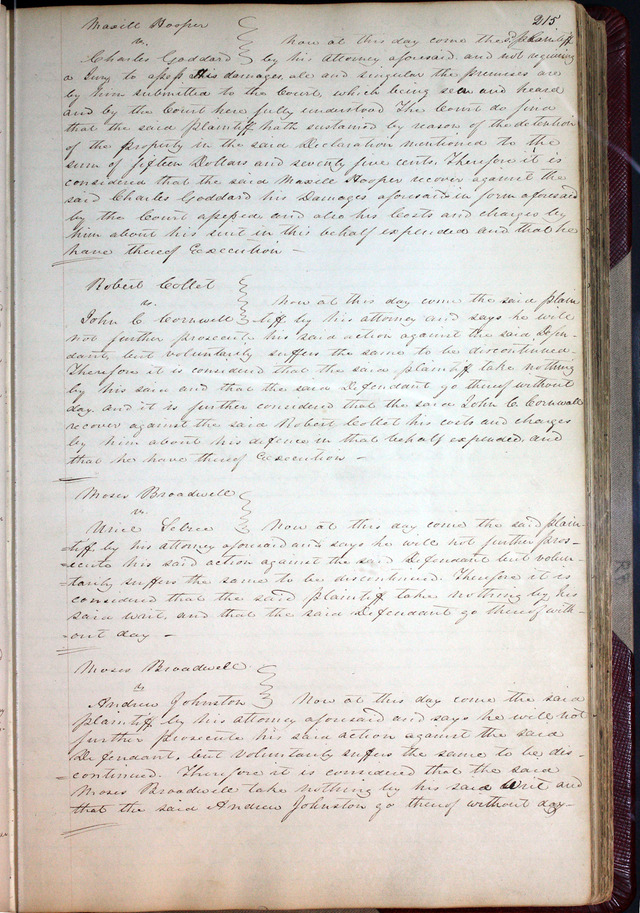 215
Maxill Hooper
vs.
Charles Goddard
Now at this day come the sd. Plaintiff
by his Attorney aforesaid and not requiring
a Jury to assess His damages, all and singular the premises are
by him submitted to the Court, which being seen and heard
and by the Court here fully understood The Court do find
that the said Plaintiff hath sustained by reason of the detention
of the property in the said Declaration mentioned to the
sum of fifteen Dollars and seventy five cents. Therefore it is
considered that the said Maxill Hooper recover against the
said Charles Goddard his Damages aforesaid in form aforesaid
by the Court assessed and also his Costs and charges by
him about his suit in this behalf expended and that he
have thereof Execution —
Robert Collet
vs.
John C. Cornwell
Now at this day come the said plain
tiff by his attorney and says he will
not further prosecute his said action against the said Defen-
dant, but voluntarily suffers the same to be discontinued.
Therefore it is considered that the said plaintiff take nothing
by his said and that the said Defendant go thereof without
day. and it is further considered that the said John C. Cornwall
recover against the said Robert Collet his costs and charges
by him about his defence in that behalf expended, and
that he have thereof Execution —
Moses Broadwell
vs.
Uriel Sebree
Now at this day come the said plain-
-tiff, by his attorney aforesaid and says he will not further pros-
-ecute his said action against the said Defendant but volun-
-tarily suffers the same to be discontinued. Therefore it is
considered that the said plaintiff take nothing by his
said writ, and that the said Defendant go thereof with-
-out day —
Moses Broadwell
vs
Andrew Johnston
Now at this day come the said
plaintiff by his attorney aforesaid and says he will not
further prosecute his said action against the said
Defendant, but voluntarily suffers the same to be dis-
-continued. Therefore it is considered that the said
Moses Broadwell take nothing by his said Writ and
that the said Andrew Johnston go thereof without day —